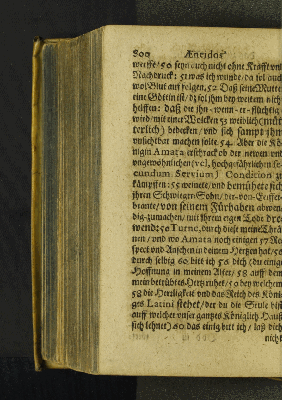 800 Æneidos
werffe/50 seyn auch nicht ohne Krafft und
Nachdruck: 51 was ich wunde/ da sol auch
wol Blut auf folgen. 52 Daß seine Mutter
eine Göttin ist/ dz sol ihm bey weitem nich
helffen: daß die ihn-wenn-er-flüchtig
wird/mit einer Wolcken 53 weiblich (müt
terlich) bedecken/ und sich sampt ihm
unsichtbar machen solte. 54 Aber die Kö
nigin Amata erschrack ob der neuen und
ungewöhnlichen (vel, hochgefährlichen se-
cundum Servium) Condition zu
kämpffen: 55 weinete/ und bemühete sich
ihren Schwieger-Sohn/ der-von-Eiffer-
brante/ von seinem Fürhaben abwen
dig-zumachen/ mit ihrem eigen Tode dro
wend: 56 Turne, durch diese meine Thrä
nen/ und wo Amata noch einigen 57 Re
spect und Ansehen in deinem Hertzen hat/
durch selbig 60 bitt ich dich/ (du einige
Hoffnung in meinem Alter/ 58 auff dem
mein betrübtes Hertz ruhet/ 59 bey welchem
58 die Herrligkeit und das Reich des Köni
ges Latini stehet/ der du die Seule bist
auff welcher unser gantzes Königlich Hauß
sich lehnet) 60 das einig bitt ich/ laß dich
nicht